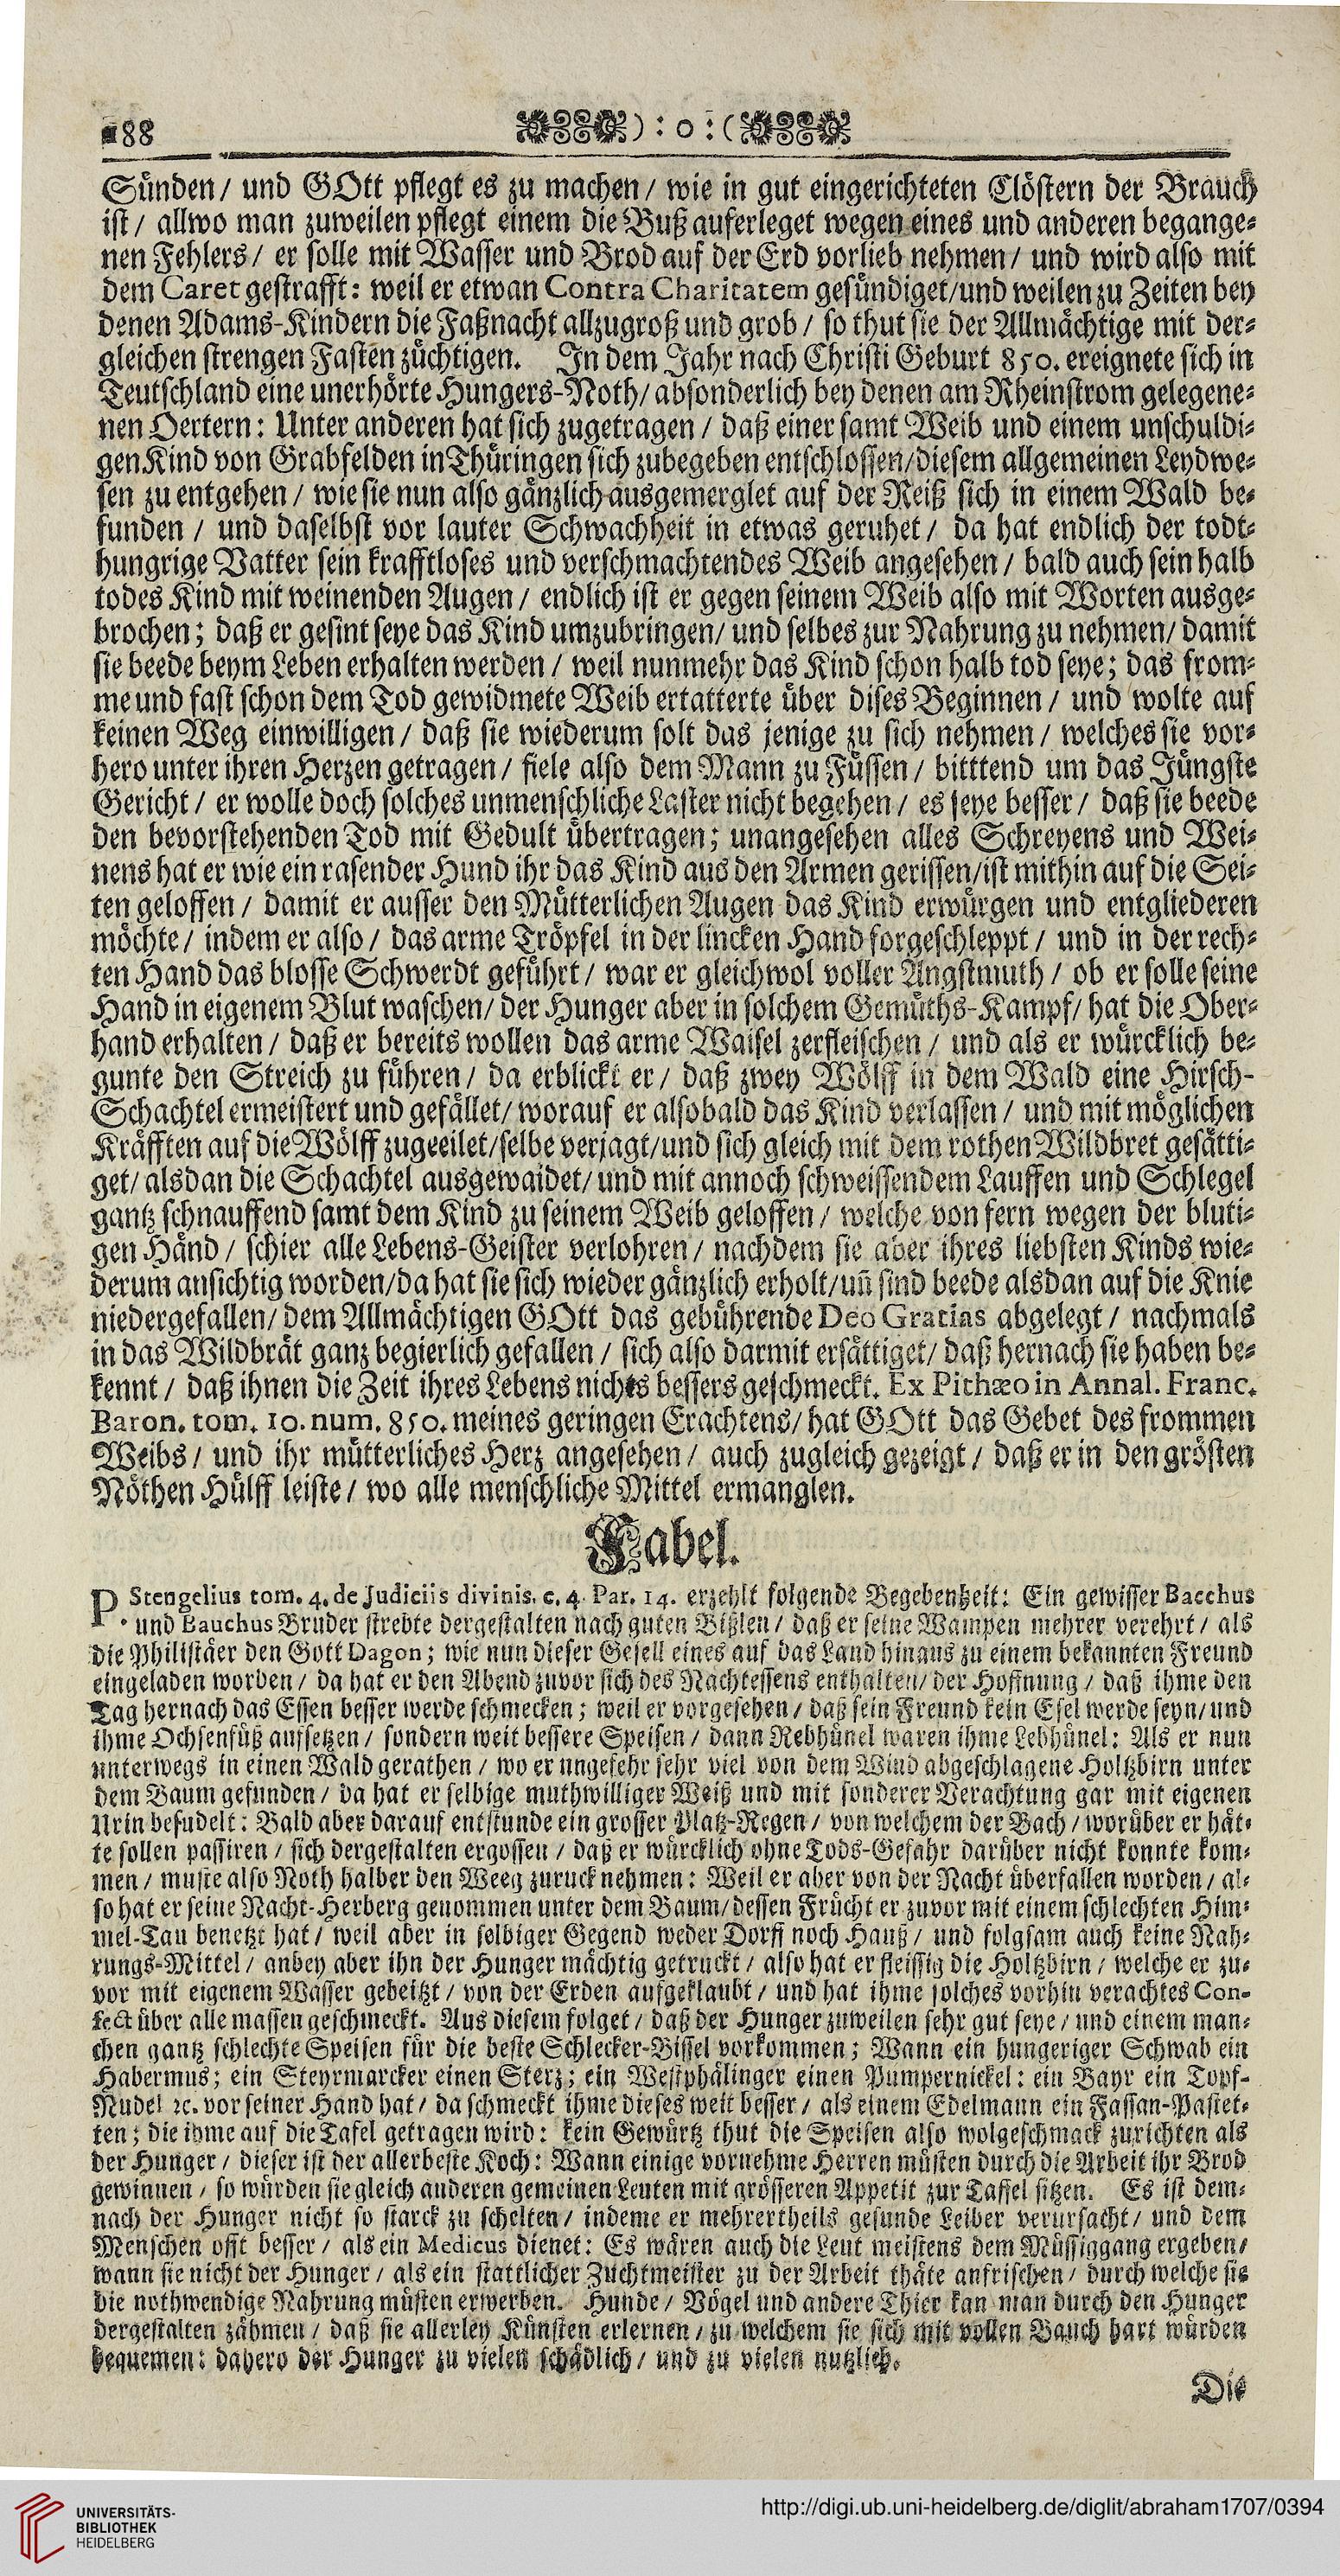 88 ) : o : (
Sünden/ und GOtt pflegt es zu machen/ wie in gut eingerichteten Clöstern der Brauch
ist/ allwo man zuweilen pflegt einem die Buß auferleget wegen eines und anderen begange-
nen Fehlers/ er solle mit Wasser und Brod auf der Erd vorlieb nehmen/ und wird also mit
dem Caret gestrafft: weil er etwan Contra Charitatem gesündiget/und weilen zu Zeiten bey
denen Adams-Kindern die Faßnacht allzugroß und grob/ so thut sie der Allmächtige mit der-
gleichen strengen Fasten züchtigen. In dem Jahr nach Christi Geburt 850. ereignete sich in
Teutschland eine unerhörte Hungers-Noth/ absonderlich bey denen am Rheinstrom gelegene-
nen Oertern: Unter anderen hat sich zugetragen/ daß einer samt Weib und einem unschuldi-
gen Kind von Grabfelden in Thüringen sich zubegeben entschlossen/diesem allgemeinen Leydwe-
sen zu entgehen/ wie sie nun also gänzlich ausgemerglet auf der Reiß sich in einem Wald be-
funden/ und daselbst vor lauter Schwachheit in etwas geruhet/ da hat endlich der todt-
hungrige Vatter sein krafftloses und verschmachtendes Weib angesehen/ bald auch sein halb
todes Kind mit weinenden Augen/ endlich ist er gegen seinem Weib also mit Worten ausge-
brochen; daß er gesint seye das Kind umzubringen/ und selbes zur Nahrung zu nehmen/ damit
sie beede beym Leben erhalten werden/ weil nunmehr das Kind schon halb tod seye; das from-
me und fast schon dem Tod gewidmete Weib ertatterte über dises Beginnen/ und wolte auf
keinen Weg einwilligen/ daß sie wiederum solt das jenige zu sich nehmen/ welches sie vor-
hero unter ihren Herzen getragen/ fiele also dem Mann zu Füssen/ bitttend um das Jüngste
Gericht/ er wolle doch solches unmenschliche Laster nicht begehen/ es seye besser/ daß sie beede
den bevorstehenden Tod mit Gedult übertragen; unangesehen alles Schreyens und Wei-
nens hat er wie ein rasender Hund ihr das Kind aus den Armen gerissen/ist mithin auf die Sei-
ten geloffen/ damit er ausser den Mütterlichen Augen das Kind erwürgen und entgliederen
möchte/ indem er also/ das arme Tröpfel in der lincken Hand forgeschleppt/ und in der rech-
ten Hand das blosse Schwerdt geführt/ war er gleichwol voller Angstmuth/ ob er solle seine
Hand in eigenem Blut waschen/ der Hunger aber in solchem Gemüths-Kampf/ hat die Ober-
hand erhalten/ daß er bereits wollen das arme Waisel zerfleischen/ und als er würcklich be-
gunte den Streich zu führen/ da erblickt er/ daß zwey Wölff in dem Wald eine Hirsch-
Schachtel ermeistert und gefället/ worauf er alsobald das Kind verlassen/ und mit möglichen
Kräfften auf die Wölff zugeeilet/selbe verjagt/und sich gleich mit dem rothen Wildbret gesätti-
get/ alsdan die Schachtel ausgewaidet/ und mit annoch schweissendem Lauffen und Schlegel
gantz schnauffend samt dem Kind zu seinem Weib geloffen/ welche von fern wegen der bluti-
gen Händ/ schier alle Lebens-Geister verlohren/ nachdem sie aber ihres liebsten Kinds wie-
derum ansichtig worden/da hat sie sich wieder gänzlich erholt/uñ sind beede alsdan auf die Knie
niedergefallen/ dem Allmächtigen GOtt das gebührende Deo Gratias abgelegt/ nachmals
in das Wildbrät ganz begierlich gefallen/ sich also darmit ersättiget/ daß hernach sie haben be-
kennt/ daß ihnen die Zeit ihres Lebens nichts bessers geschmeckt. Ex Pithæo in Annal. Franc.
Baron. tom. 10. num. 850. meines geringen Erachtens/ hat GOtt das Gebet des frommen
Weibs/ und ihr mütterliches Herz angesehen/ auch zugleich gezeigt/ daß er in den grösten
Nöthen Hülff leiste/ wo alle menschliche Mittel ermanglen.
Fabel.
P. Stengelius tom. 4. de Judiciis divinis. c. 4. Par. 14. erzehlt folgende Begebenheit: Ein gewisser Bacchus
und Bauchus Bruder strebte dergestalten nach guten Bißlen/ daß er seine Wampen mehrer verehrt/ als
die Philistäer den Gott Dagon; wie nun dieser Gesell eines auf das Land hinaus zu einem bekannten Freund
eingeladen worden/ da hat er den Abend zuvor sich des Nachtessens enthalten/ der Hoffnung/ daß ihme den
Tag hernach das Essen besser werde schmecken; weil er vorgesehen/ daß sein Freund kein Esel werde seyn/ und
ihme Ochsenfüß aufsetzen/ sondern weit bessere Speisen/ dann Rebhünel waren ihme Lebhünel: Als er nun
unterwegs in einen Wald gerathen/ wo er ungefehr sehr viel von dem Wind abgeschlagene Holtzbirn unter
dem Baum gefunden/ da hat er selbige muthwilliger Weiß und mit sonderer Verachtung gar mit eigenen
Urin besudelt: Bald aber darauf entstunde ein grosser Platz-Regen/ von welchem der Bach/ worüber er hät-
te sollen passiren/ sich dergestalten ergossen/ daß er würcklich ohne Tods-Gefahr darüber nicht konnte kom-
men/ muste also Noth halber den Weeg zuruck nehmen: Weil er aber von der Nacht überfallen worden/ al-
so hat er seine Nacht-Herberg genommen unter dem Baum/dessen Frücht er zuvor mit einem schlechten Him-
mel-Tau benetzt hat/ weil aber in selbiger Gegend weder Dorff noch Hauß/ und folgsam auch keine Nah-
rungs-Mittel/ anbey aber ihn der Hunger mächtig getruckt/ also hat er fleissig die Holtzbirn/ welche er zu-
vor mit eigenem Wasser gebeitzt/ von der Erden aufgeklaubt/ und hat ihme solches vorhin verachtes Con-
fect über alle massen geschmeckt. Aus diesem folget/ daß der Hunger zuweilen sehr gut seye/ und einem man-
chen gantz schlechte Speisen für die beste Schlecker-Bissel vorkommen; Wann ein hungeriger Schwab ein
Habermus; ein Steyrmarcker einen Sterz; ein Westphälinger einen Pumpernickel: ein Bayr ein Topf-
Nudel ꝛc. vor seiner Hand hat/ da schmeckt ihme dieses weit besser/ als einem Edelmann ein Fassan-Pastet-
ten; die ihme auf die Tafel getragen wird: kein Gewürtz thut die Speisen also wolgeschmack zurichten als
der Hunger/ dieser ist der allerbeste Koch: Wann einige vornehme Herren müsten durch die Arbeit ihr Brod
gewinnen/ so würden sie gleich anderen gemeinen Leuten mit grösseren Appetit zur Taffel sitzen. Es ist dem-
nach der Hunger nicht so starck zu schelten/ indeme er mehrertheils gesunde Leiber verursacht/ und dem
Menschen offt besser/ als ein Medicus dienet: Es wären auch die Leut meistens dem Müssiggang ergeben/
wann sie nicht der Hunger/ als ein stattlicher Zuchtmeister zu der Arbeit thäte anfrischen/ durch welche sie
die nothwendige Nahrung müsten erwerben. Hunde/ Vögel und andere Thier kan man durch den Hunger
dergestalten zähmen/ daß sie allerley Künsten erlernen/ zu welchem sie sich mit vollen Bauch hart würden
bequemen: dahero der Hunger zu vielen schädlich/ und zu vielen nutzlich.
Die
UNIVERSITÄTS-
BIBLIOTHEK
HEIDELBERG
http://digi.ub.uni-heidelberg.de/diglit/abraham1707/0394